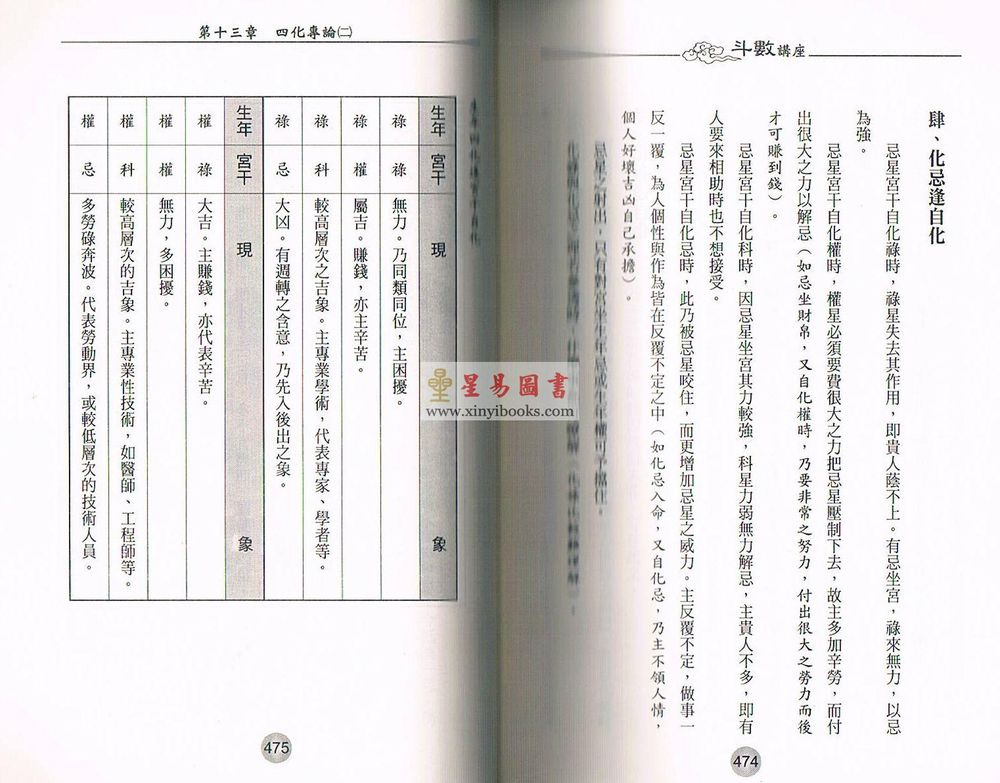 斗數講座
肆、化忌逢自化
忌星宮干自化祿時，祿星失去其作用，即貴人蔭不上。有忌坐宮，祿來無力，以忌
為強。
忌星宮干自化權時，權星必須要費很大之力把忌星壓制下去，故主多加辛勞，而付
出很大之力以解忌（如忌坐財帛，又自化權時，乃要非常之努力，付出很大之勞力而後
才可賺到錢）。
忌星宮干自化科時，因忌星坐宮其力較強，科星力弱無力解忌，主貴人不多，即有
人要來相助時也不想接受。
忌星宮干自化忌時，此乃被忌星咬住，而更增加忌星之威力。主反覆不定，做事一
反一覆，為人個性與作為皆在反覆不定之中（如化忌入命，又自化忌，乃主不領人情，
個人好壞吉凶自己承擔）。
忌星之射出，只有對宮坐生年忌或生年權可予擋住。
474
第十三章 四化專論(二)
生年四化逢宮干自化
生年 宮干 現象
祿 祿 無力。乃同類同位，主困擾。
祿 權 屬吉。賺錢，亦主辛苦。
祿 科 較高層次之吉象。主專業學術，代表專家、學者等。
祿 忌 大凶。有週轉之含意，乃先入後出之象。
生年 宮干 現象
權 祿 大吉。主賺錢，亦代表辛苦。
權 權 無力，多困擾。
權 科 較高層次的吉象。主專業性技術，如醫師、工程師等。
權 忌 多勞碌奔波。代表勞動界，或較低層次的技術人員。
475
星易圖書
www.xinyibooks.com